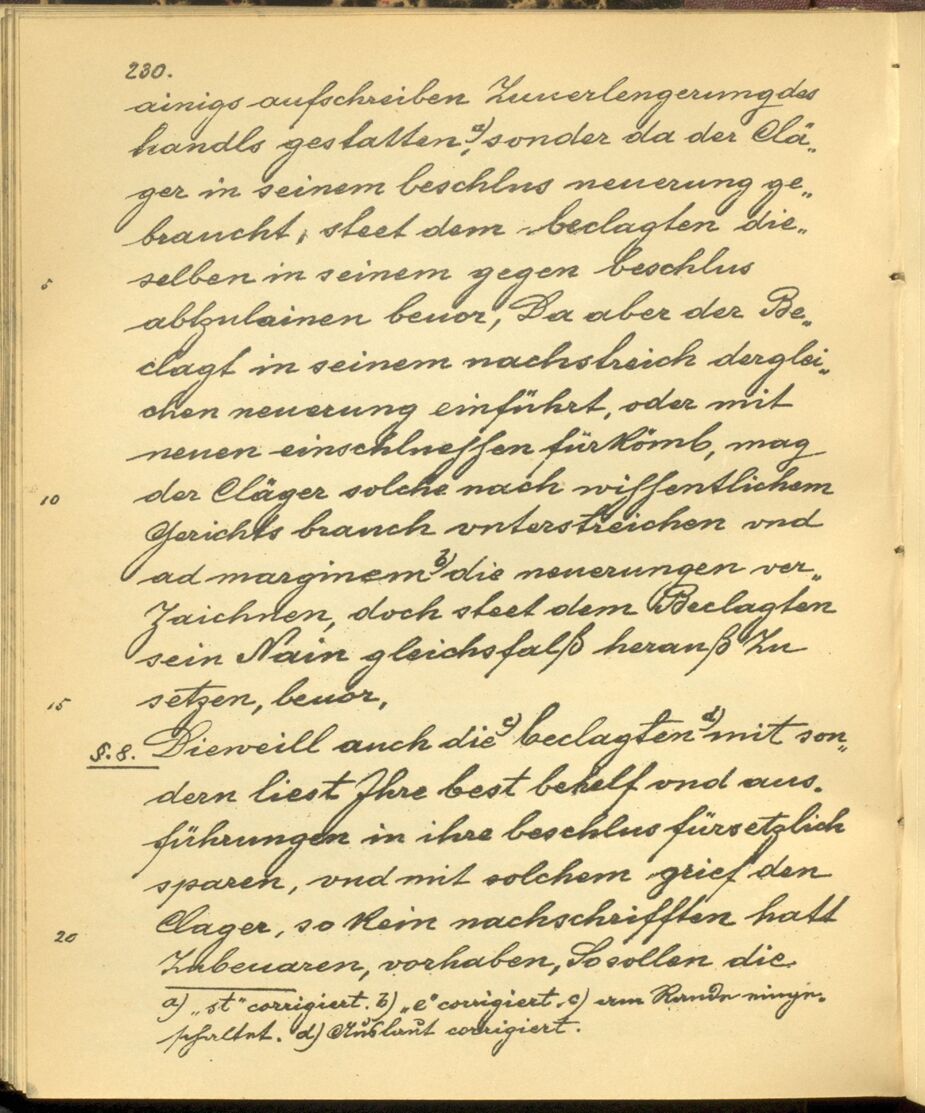 230.
ainigs aufschreiben Zuuerlengerung des
handls gestatten a), sonder da der Clä„
ger in seinem beschlus neuerung ge„
braucht, steet dem beclagten die„
5 selben in seinem gegen beschlus
abtzulainen beuor, Da aber der Be„
clagt in seinem nachstreich derglei„
chen neuerung einführt, oder mit
neuen einschluessen fürkömb, mag
10 der Cläger solche nach wissentlichem
Gerichts brauch vnterstreichen vnd
ad marginem b) die neuerungen ver„
Zaichnen, doch steet dem Beclagten
sein Nain gleichsfalß herauß Zu
15 setzen, beuor,
§. 8. Dieweill auch die c) beclagten d) mit son„
dern liest Ihre best behelf vnd aus„
führungen in ihre beschlus fürsetzlich
sparen, vnd mit solchem grief den
Clager, so kein nachschrifften hatt
20 Zubeuaren, vorhaben, So sollen die
a) „st" corrigiert. b) „e" corrigiert. c) am Rande einge„
schaltet. d) Auslaut corrigiert.